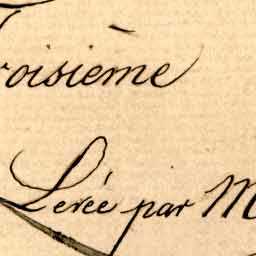 Troisième
Levée par M